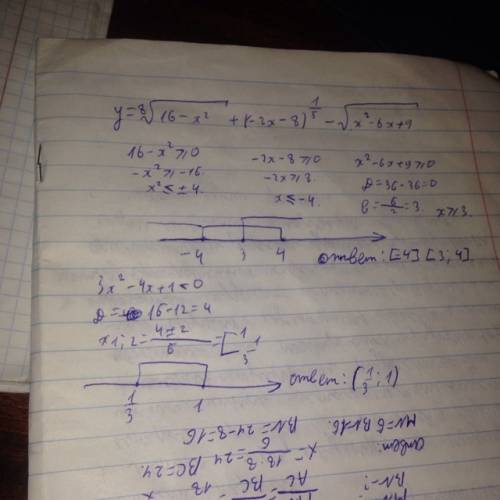 y = ⁸√(16-x²) + (-2x-8)^(1/5) - √(x²-6x+9)
16-x² ≥ 0
-x² ≥ -16
x² ≤ ± 4.
-2x-8 ≥ 0
-2x ≥ 8.
x ≤ -4.
x²-6x+9 ≥ 0
D = 36-36 = 0
= 6/2 = 3. x ≥ 3.
-4 3 4
ответ: [-4] [3; 4].
3x²-4x+1 < 0
D = 16-12 = 4
x1;2 = (4±2)/6 = [1 1/3
1/3 1
ответ: (1/3; 1)
BN = 24-8 = 16
x = 18·8/6 = 24 BC = 24.